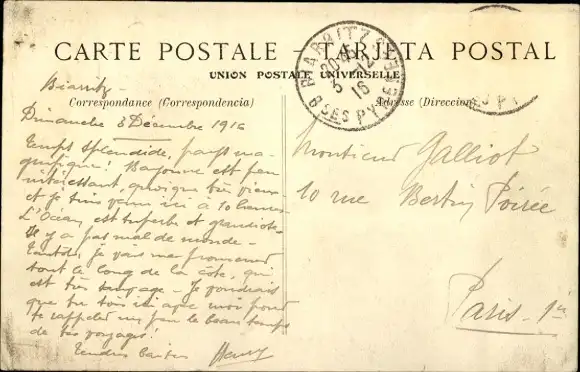 CARTE POSTALE — TARJETA POSTAL
UNION POSTALE UNIVERSELLE
BIARRITZ
20
3 - 12
16
BSES PYRENEES
SES PY
Correspondance (Correspondencia)
Adresse (Direccion)
Biarritz -
Dimanche 3 Décembre 1916
Temps splendide, pays ma-
gnifique! Bayonne est peu
intéressant, quoique très vieux
et je suis venu ici à 10 heures
L'Océan est superbe et grandiose
Il y a pas mal de monde -
Tantôt je vais me promener
tout le long de la côte, qui
est très sauvage - Je voudrais
que tu sois ici avec moi pour
te rappeler un peu le beau temps
de tes voyages!
Tendres baisers Henry
Monsieur Galliot
10 rue Bertin Poirée
Paris. 1er